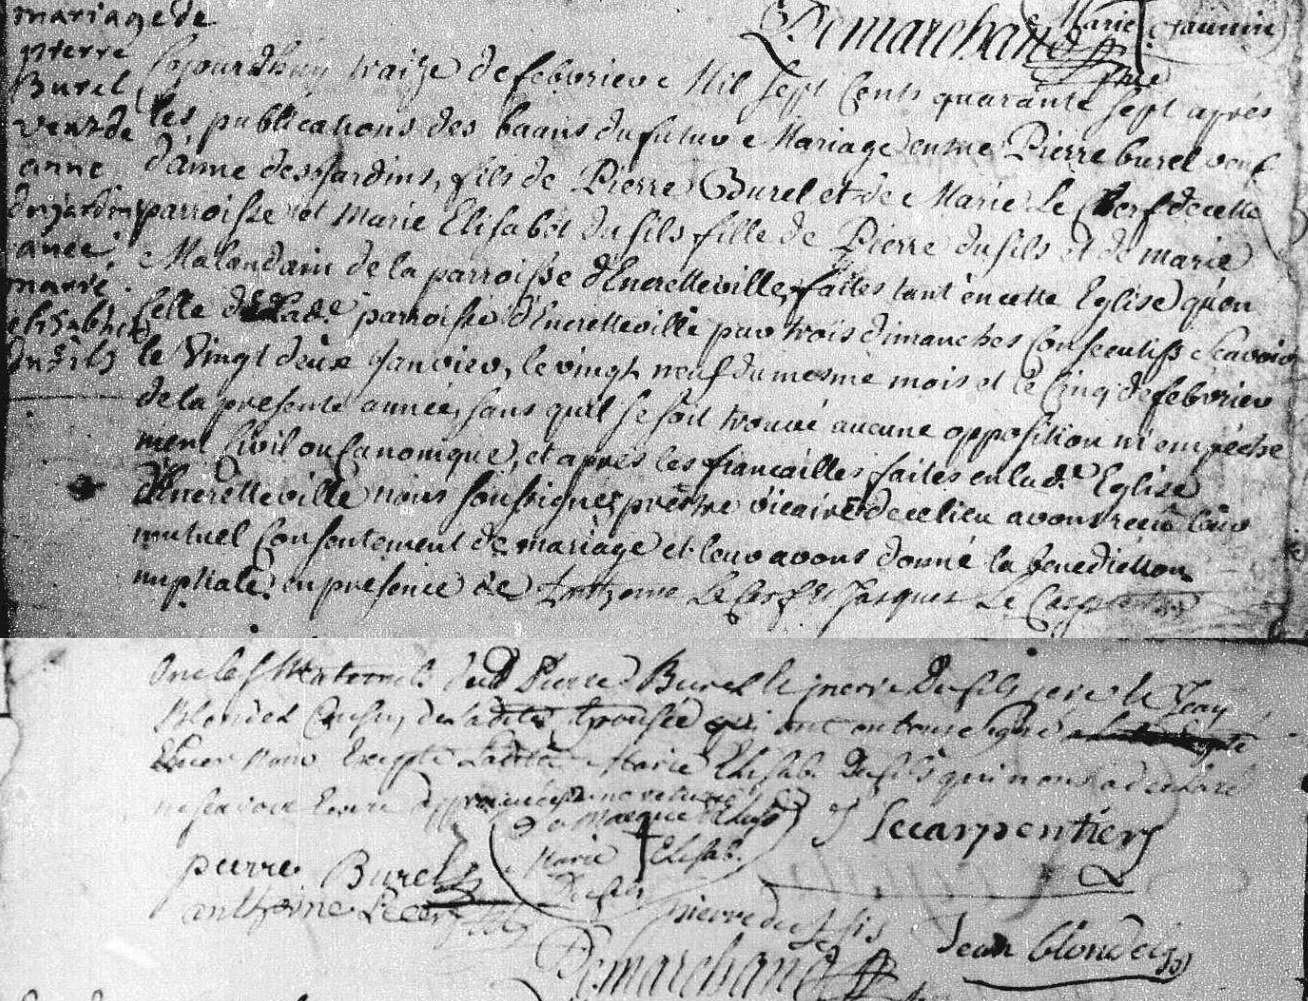 mariage de
pierre
Burel
veuf de
anne
desjardins
avec
marie
elisabet
du fils
Demarchand
Marie Jaunin
Cejourdhuy traize de febvrier Mil sept Cents quarante sept aprés
les publications des baans du futur Mariage entre Pierre burel veuf
d'anne desjardins, fils de Pierre Burel et de Marie Le Cerf de cette
parroisse et Marie Elisabét du fils fille de Pierre du fils et de marie
Malandain de la parroisse d'Encretteville, faites tant en cette Eglise qu'en
celle de Lad.e parroisse d'Encretteville par trois dimanches Consecutifs scavoir
le vingt deux Janvier, le vingt neuf du mesme mois et le Cinq de febvrier
de la presente année, sans qu'il se soit trouvé aucune opposition ni empéche
ment Civil ou Canonique, et aprés les fiancailles faites en lad.e Eglise
d'Encretteville nous soussignés prestre vicaire de ce lieu avons receu leur
mutuel Consentement de mariage et leur avons donné la benediction
nuptiale en présence de Anthoine Le Cerf et Jacques Le Carpentier
oncles Maternels dud Pierre Burel pierre Du fils pere et Jean
Blondel Cousin de ladite Epousée qui ont
Marie Elisab. Du fils qui nous a declaré
ne scavoir Ecrire
la marque
Marie Elisab.
Du fils
J Lecarpentier
pierre Burel
anthoine Le cerf
pierre du fils
Jean blondel
Demarchand